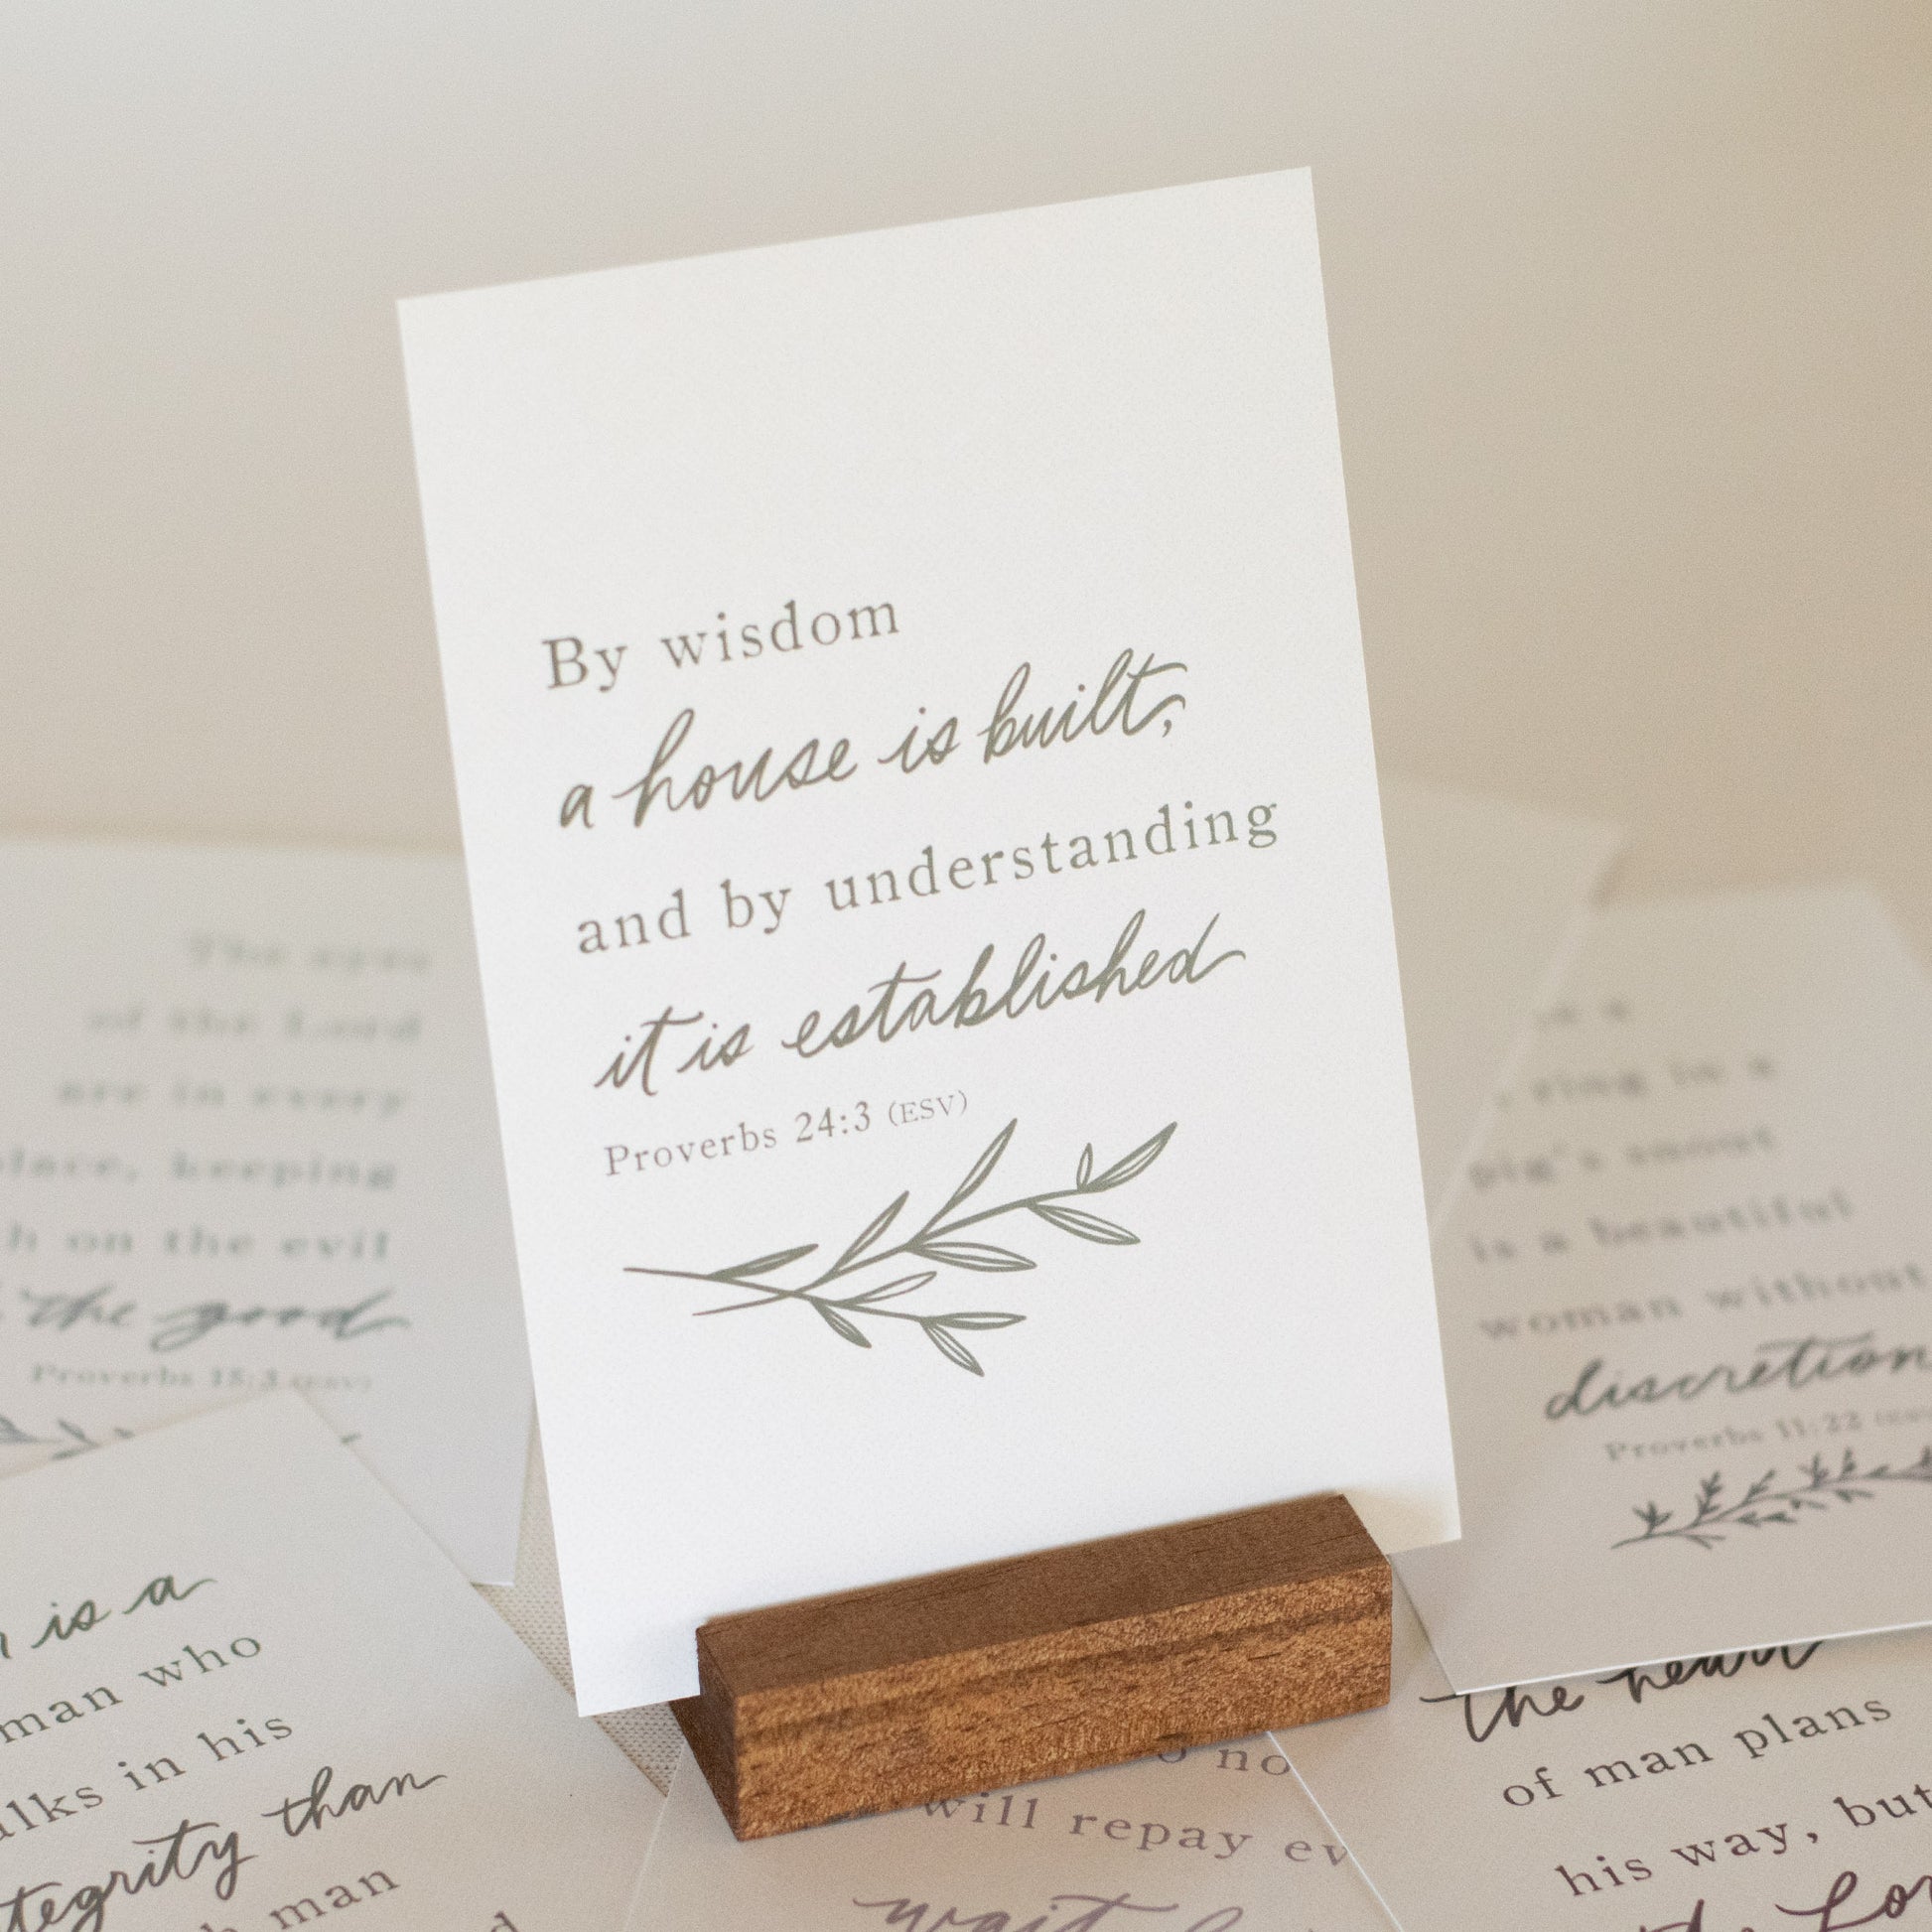 By wisdom
a house is built,
and by understanding
it is established
Proverbs 24:3 (ESV)
The eyes
of the Lord
are in every
place, keeping
on the evil
the good
Proverbs 15:3 (ESV)
a
ring in a
pig's snout
is a beautiful
woman without
discretion
Proverbs 11:22
is a
man who
in his
than
man
no
will repay
wait
the heart
of man plans
his way, but